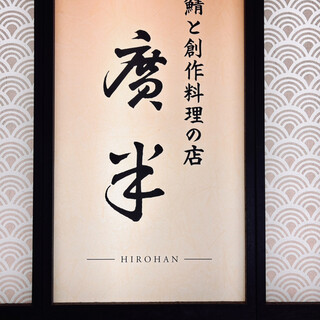 鯖と創作料理の店
廣半
HIROHAN